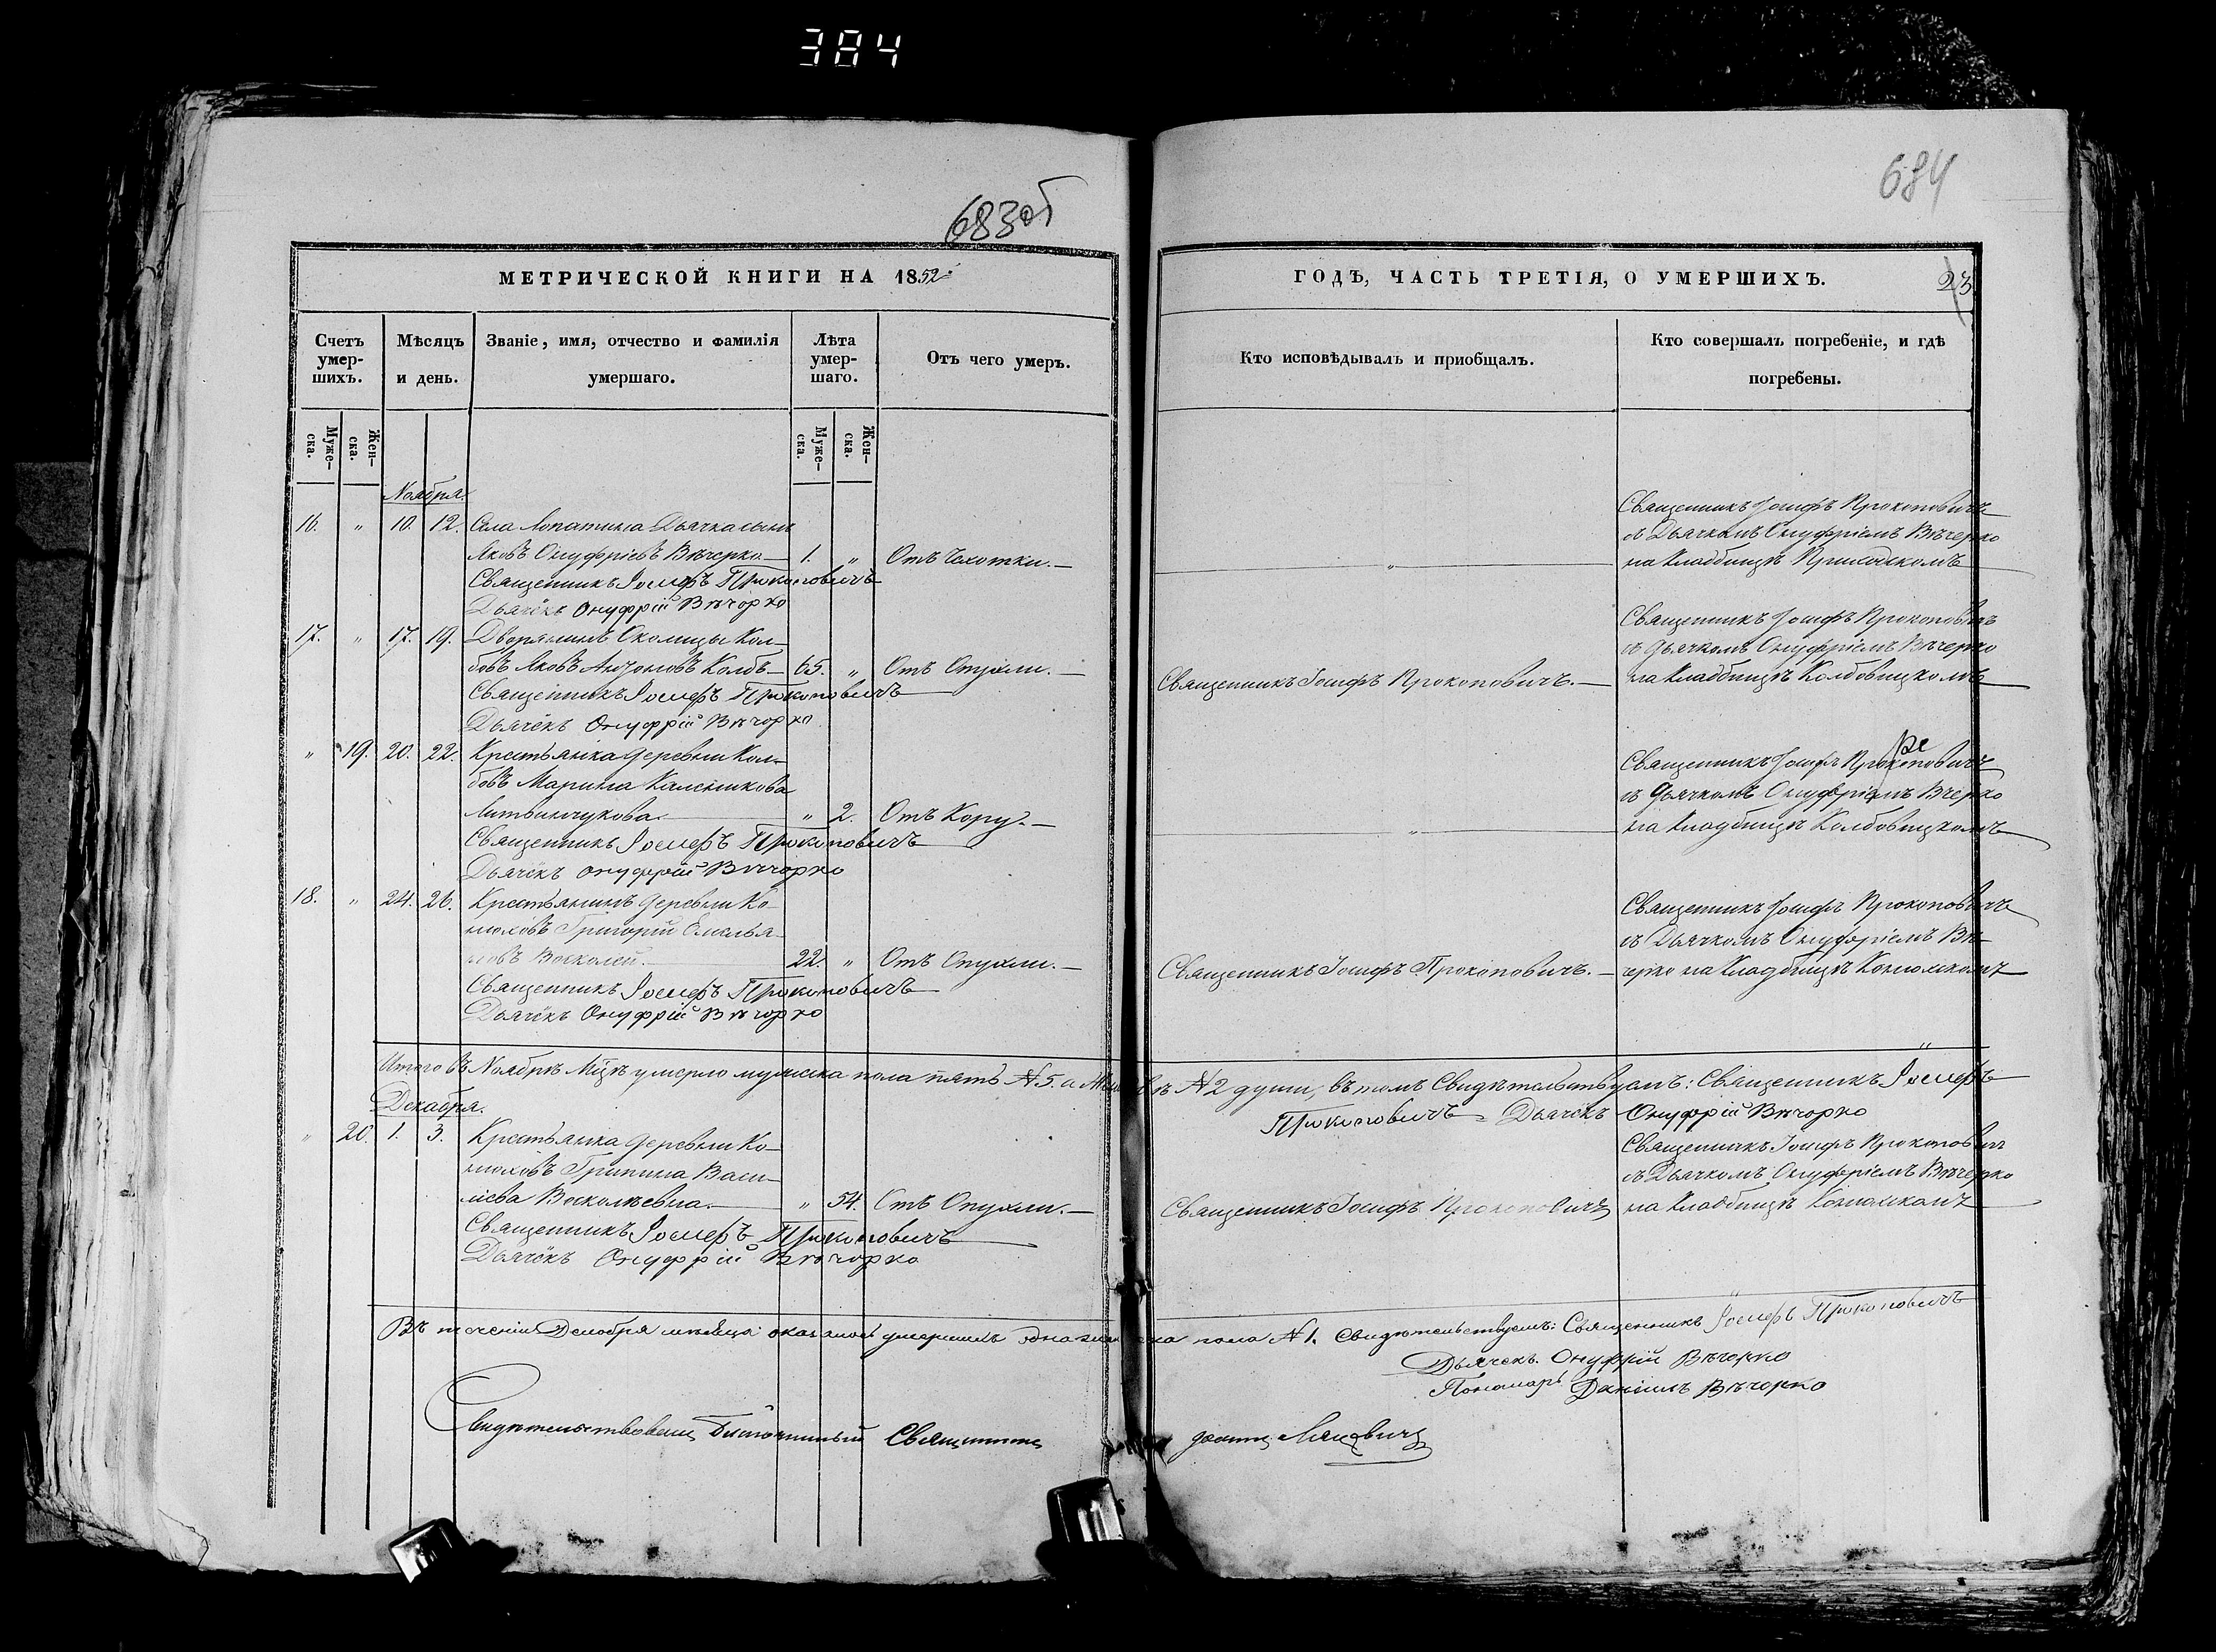 384
683об
684
МЕТРИЧЕСКОЙ КНИГИ НА 1852
ГОДЪ, ЧАСТЬ ТРЕТІЯ, О УМЕРШИХЪ.
23
Счетъ умер-шихъ.
Мѣсяцъ и день.
Званіе, имя, отчество и фамилія умершаго.
Лѣта умер-шаго.
Отъ чего умеръ.
Кто исповѣдывалъ и приобщалъ.
Кто совершалъ погребеніе, и гдѣ погребены.
Муже-ска.
Жен-ска.
Муже-ска.
Жен-ска.
Ноября.
16. " 10. 12. Села Лопатина Дьячка сынъ
Яковъ Онуфріевъ Вѣчерко 1. " Отъ Чахотки.
Священникъ Іосифъ Прокоповичъ
Дьячёкъ Онуфрій Вѣчорко
Священникъ Іосифъ Прокоповичъ
съ Дьячкомъ Онуфріемъ Вѣчерко
на Кладбищѣ Приходскомъ
17. " 17. 19. Дворянинъ Околицы Кол-
бовъ Яковъ Антоновъ Колбъ 65. " Отъ Опухли.
Священникъ Іосифъ Прокоповичъ
Дьячёкъ Онуфрій Вѣчорко
Священникъ Іосифъ Прокоповичъ.
Священникъ Іосифъ Прокоповичъ
съ Дьячкомъ Онуфріемъ Вѣчерко
на Кладбищѣ Колбовицкомъ
" 19. 20. 22. Крестьянка деревни Кол-
бовъ Марина Каленикова
Литвинчукова. " 2. Отъ Кору.
Священникъ Іосифъ Прокоповичъ
Дьячёкъ Онуфрій Вѣчорко
Священникъ Іосифъ Прокоповичъ
съ Дьячкомъ Онуфріемъ Вчерко
на Кладбищѣ Колбовицкомъ
18. " 24. 26. Крестьянинъ деревни Ко-
нюховъ Григорій Емелья-
новъ Восколей. 22. " Отъ Опухли.
Священникъ Іосифъ Прокоповичъ
Дьячёкъ Онуфрій Вѣчорко
Священникъ Іосифъ Прокоповичъ.
Священникъ Іосифъ Прокоповичъ
съ Дьячкомъ Онуфріемъ Вѣ-
черко на Кладбищѣ
Итого въ Ноябрѣ М͠цѣ умерло мужеска пола пять №5. а №2 души, въ томъ Свидѣтельствуемъ: Священникъ Іосифъ
Прокоповичъ Дьячёкъ Онуфрій Вѣчорко
Декабря.
" 20. 1. 3. Крестьянка деревни Ко-
нюховъ Грипина Васи-
лiева Восколѣевна. " 54. Отъ Опухли.
Священникъ Іосифъ Прокоповичъ
Дьячёкъ Онуфрій Вѣчорко
Священникъ Іосифъ Прокоповичъ
Священникъ Іосифъ Прокопович
съ Дьячкомъ Онуфріемъ Вѣчерко
на Кладбищѣ
Въ теченіи Декабря мѣсяца умершихъ одна пола №1. Свидѣтельствуемъ: Священникъ Іосифъ Прокоповичъ
Дьячекъ Онуфрій Вѣчорко
Пономарь Даніилъ Вѣчорко
Свидѣтельствовалъ Благочинный Священникъ